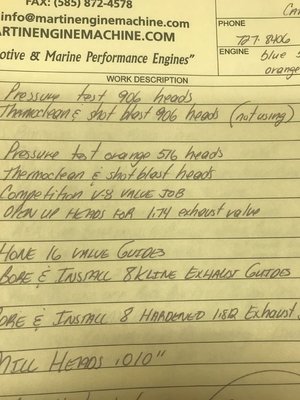 FAX: (585) 872-4578
info@martinenginemachine.com
ARTINENGINEMACHINE.COM
otive & Marine Performance Engines"
CA
PHONE
727-8406
ENGINE blue
orange
WORK DESCRIPTION
Pressure test 906 heads
Thermoclean & shot blast 906 heads (not using)
Pressure test orange 516 heads
Thermoclean & shot blast heads
Competition V-8 VALVE JOB
OPEN UP HEADS FOR 1.74 exhaust valve
HONE 16 VALVE GUIDES
BORE & INSTALL 8 KLINE EXHAUST GUIDES
BORE & INSTALL 8 HARDENED 1.812 EXHAUST
MILL HEADS .010"